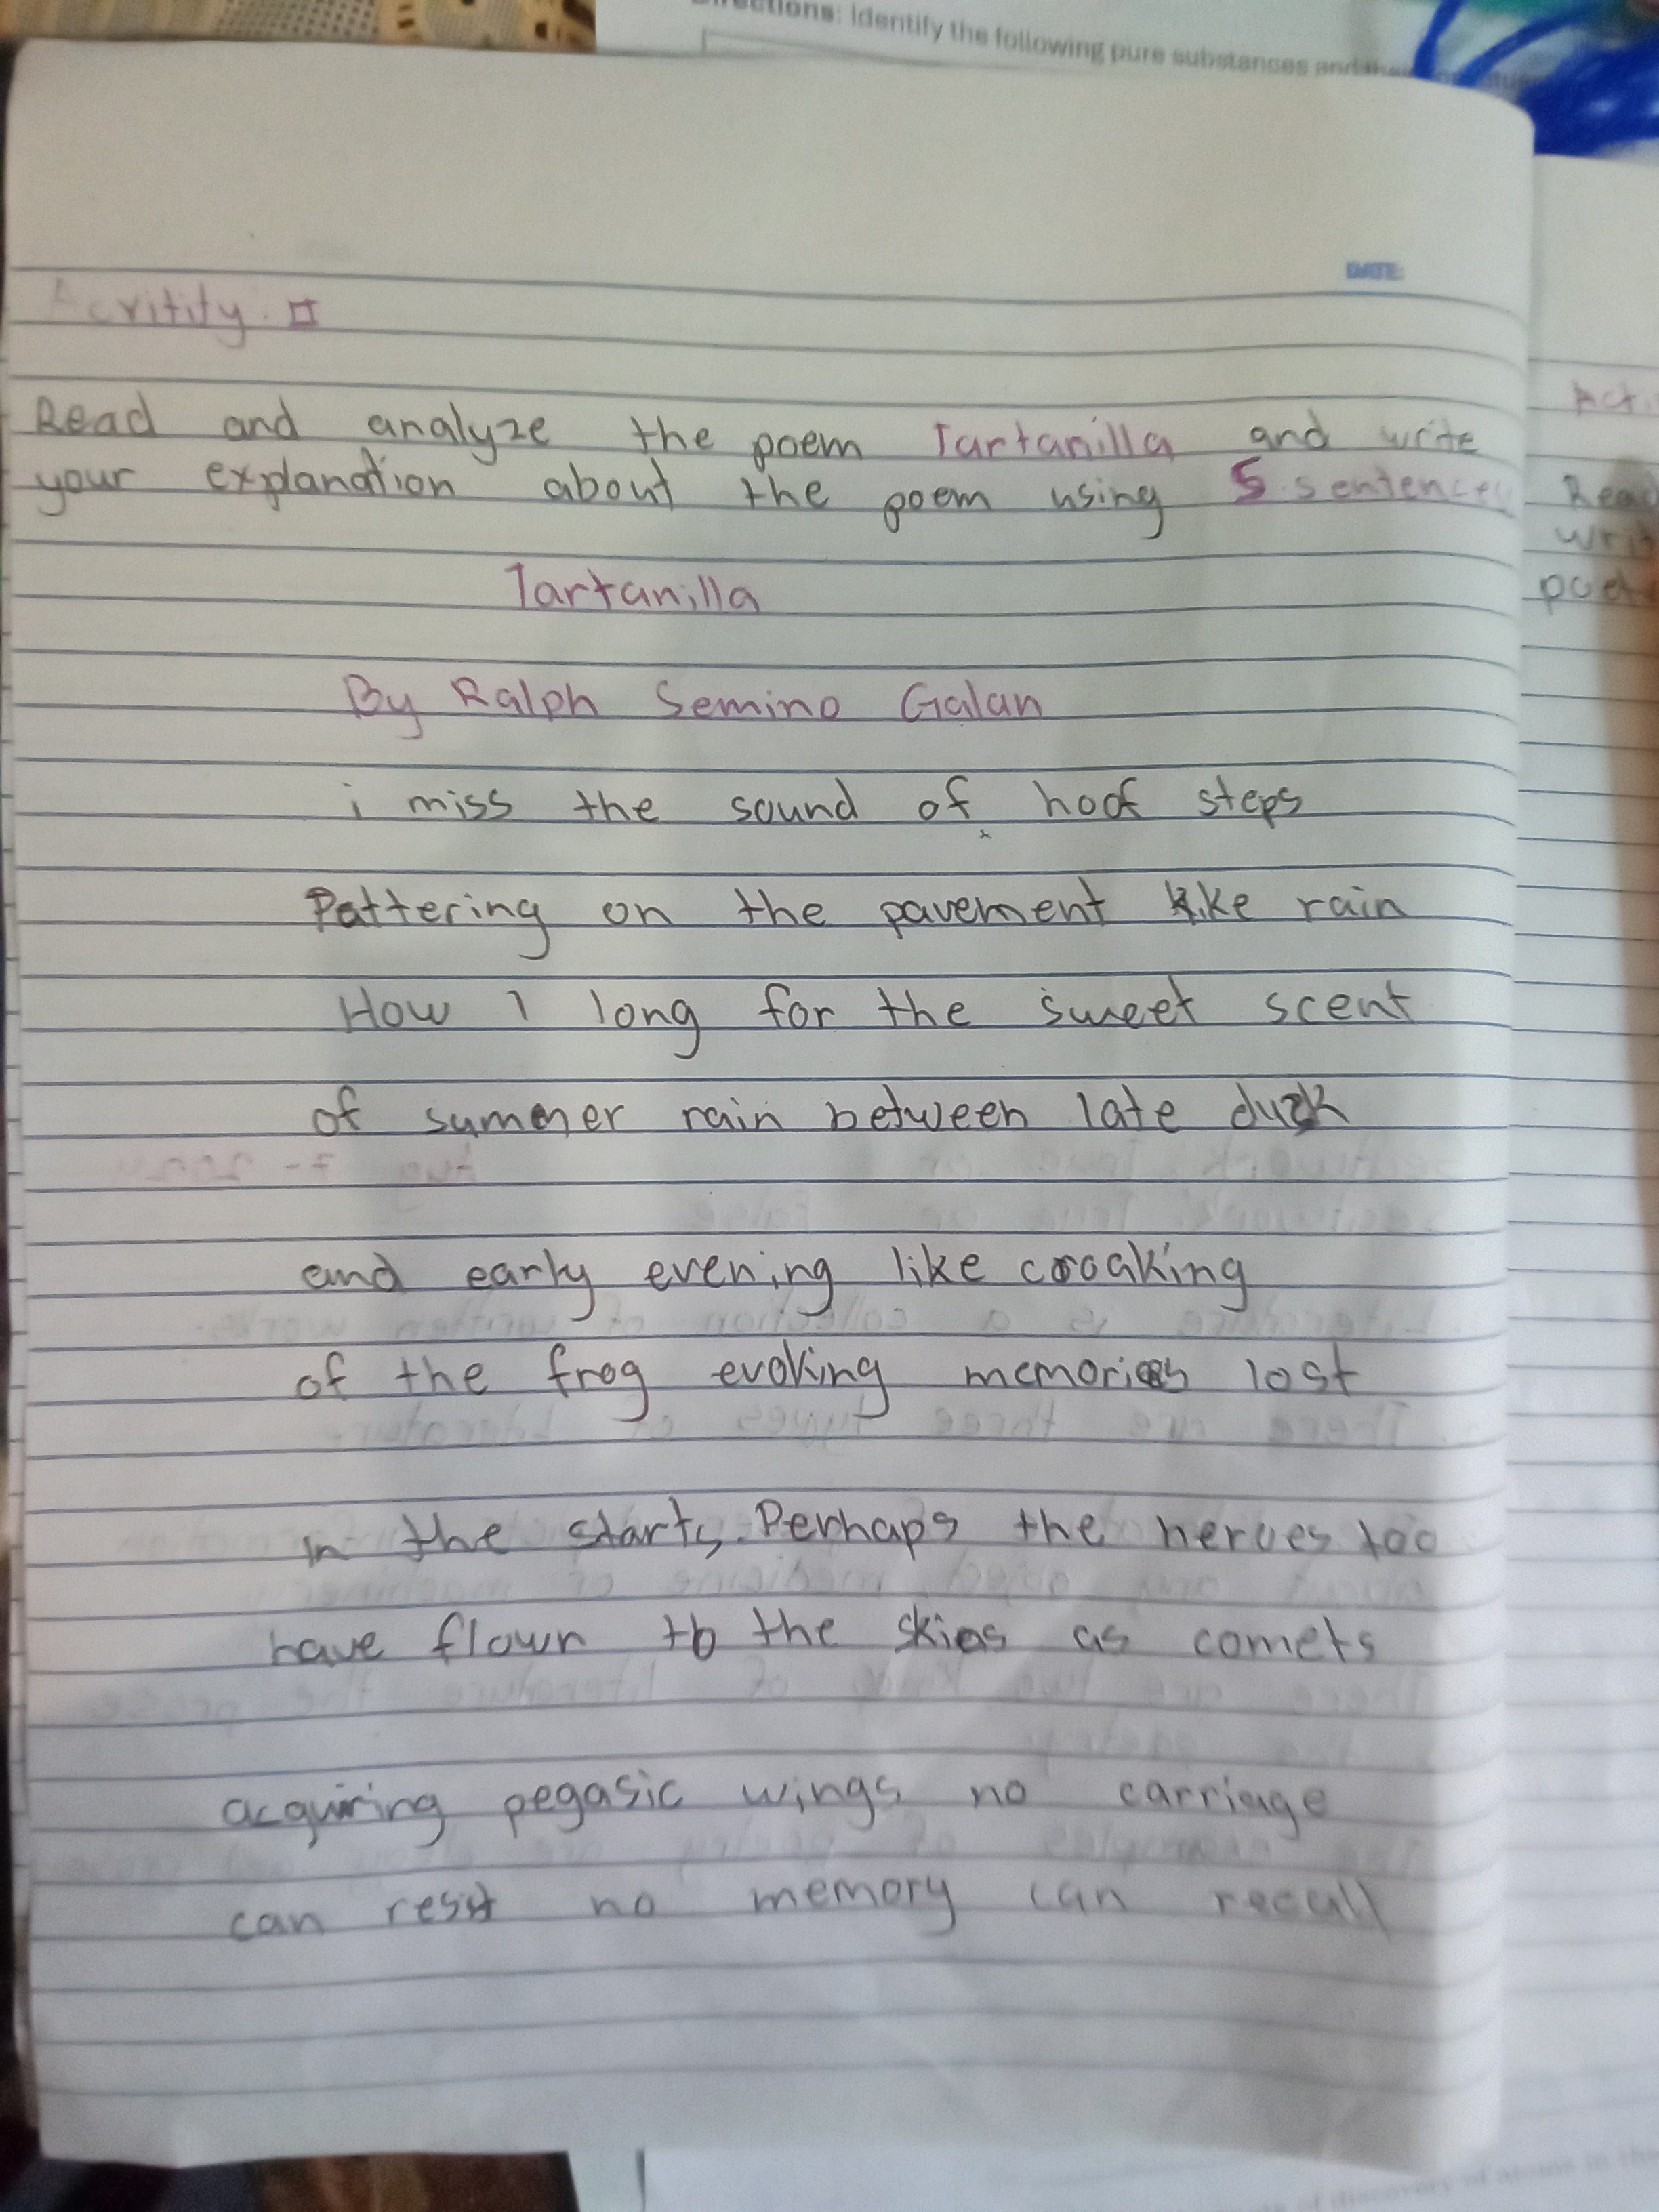 Directions: Identify the following pure substances and their
DATE:
Acritity. II
Read and analyze the poem Tartanilla and write
your explanation about the poem using 5 sentences
Tartanilla
By Ralph Semino Galan
i miss the sound of hoof steps
Pattering on the pavement like rain
How I long for the sweet scent
of summer rain between late dusk
and early evening like croaking
of the frog evoking memories lost
in the starts. Perhaps the heroes too
have flown to the skies as comets
acquiring pegasic wings no carriage
can resist no memory can recall
Acti
Read
writ
poem
of discovery of atoms in the